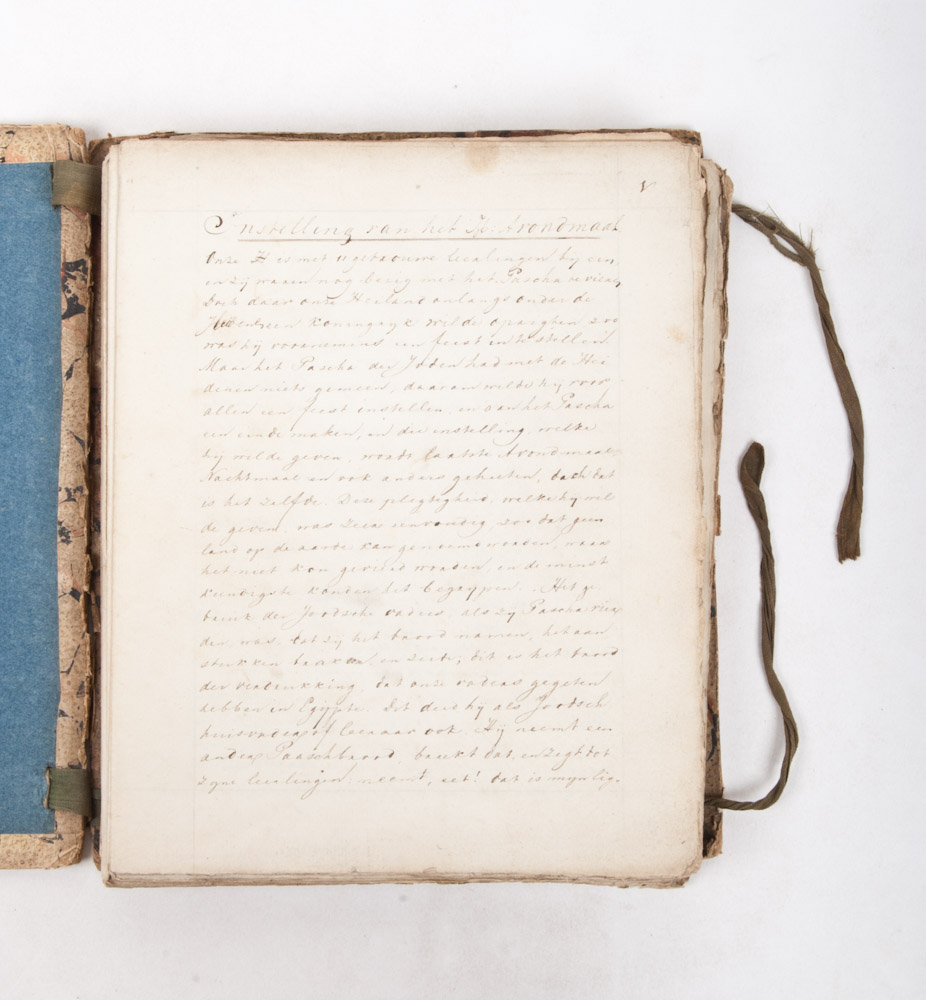 Instelling van het H: Avondmaal
Onze H is met 11 getrouwe leealingen by een
en zy waaren nog bezig met het Pascha te vieren
Doch daar onze Heiland onlangs onder de
een Koningryk wilde opreghten zoo
was hy voorneemens een feest in te stellen
Maar het Pascha der Joden had met de Hei
denen niets gemeen, daarom wilde hy voor
allen een feest instellen, en van het Pascha
een einde maken, en die instelling, welke
hy wilde geven, wordt laatste Avondmaal
Nachtmaal en ook anders geheeten, doch dat
is het zelfde. Deze plegtigheid, welke hy wil
de geven, was zeer eenvoudig, zoo dat geen
land op de aarde kan genoemd worden, waar
het niet kon gevierd worden, en de minst
kundigste konden het begrypen. Het ge
bruik der Joodsche vaders, als zy Pascha vier
den, was, dat zy het brood namen, het aan
stukken braken, en zeide; dit is het brood
der verdrukking dat onze vaders gegeten
hebben in Egypte. Dit deed hy als Joodsch
huisvader of leeraar ook. Hy neemt een
ander Paaschbrood, breekt dat, en zegt tot
zyne leealingen: neemt, eet! dat is myn lig-